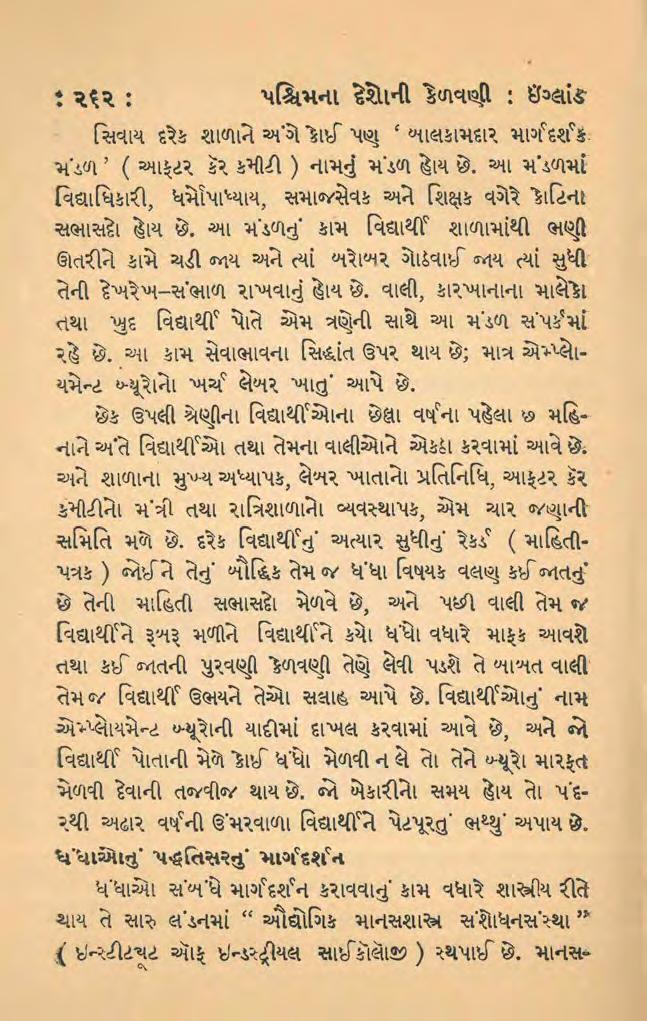 : ૨૬૨ : પશ્ચિમના દેશોની કેળવણી : ઇંગ્લાંડ
સિવાય દરેક શાળાને અંગે કોઈ પણ ‘ બાલકામદાર માર્ગદર્શક
મંડળ ’ ( આફટર કૅર કમીટી ) નામનું મંડળ હોય છે. આ મંડળમાં
વિદ્યાધિકારી, ધર્મોપાધ્યાય, સમાજસેવક અને શિક્ષક વગેરે કોટિના
સભાસદો હોય છે. આ મંડળનું કામ વિદ્યાર્થી શાળામાંથી ભણી
ઊતરીને કામે ચડી જાય અને ત્યાં બરોબર ગોઠવાઈ જાય ત્યાં સુધી
તેની દેખરેખ–સંભાળ રાખવાનું હોય છે. વાલી, કારખાનાના માલેકો
તથા ખુદ વિદ્યાર્થી પોતે એમ ત્રણેની સાથે આ મંડળ સંપર્કમાં
રહે છે. આ કામ સેવાભાવના સિદ્ધાંત ઉપર થાય છે; માત્ર એમ્પ્લો-
યમેન્ટ બ્યૂરોનો ખર્ચ લેબર ખાતું આપે છે.
છેક ઉપલી શ્રેણીના વિદ્યાર્થીઓના છેલ્લા વર્ષના પહેલા છ મહિ-
નાને અંતે વિદ્યાર્થીઓ તથા તેમના વાલીઓને એકઠા કરવામાં આવે છે.
અને શાળાના મુખ્ય અધ્યાપક, લેબર ખાતાનો પ્રતિનિધિ, આફટર કૅર
કમીટીનો મંત્રી તથા રાત્રિશાળાનો વ્યવસ્થાપક, એમ ચાર જણાની
સમિતિ મળે છે. દરેક વિદ્યાર્થીનું અત્યાર સુધીનું રેકર્ડ ( માહિતી-
પત્રક ) જોઈને તેનું બૌદ્ધિક તેમ જ ધંધા વિષયક વલણ કઈ જાતનું
છે તેની માહિતી સભાસદો મેળવે છે, અને પછી વાલી તેમ જ
વિદ્યાર્થીને રૂબરૂ મળીને વિદ્યાર્થીને કયો ધંધો વધારે માફક આવશે
તથા કઈ જાતની પુરવણી કેળવણી તેણે લેવી પડશે તે બાબત વાલી
તેમજ વિદ્યાર્થી ઉભયને તેઓ સલાહ આપે છે. વિદ્યાર્થીઓનું નામ
એમ્પ્લોયમેન્ટ બ્યૂરોની યાદીમાં દાખલ કરવામાં આવે છે, અને જો
વિદ્યાર્થી પોતાની મેળે કોઈ ધંધો મેળવી ન લે તો તેને બ્યૂરો મારફત
મેળવી દેવાની તજવીજ થાય છે. જો બેકારીનો સમય હોય તો પંદ-
રથી અઢાર વર્ષની ઉંમરવાળા વિદ્યાર્થીને પેટપૂરતું ભથ્થું અપાય છે.
ધંધાઓનું પદ્ધતિસરનું માર્ગદર્શન
ધંધાઓ સંબંધે માર્ગદર્શન કરાવવાનું કામ વધારે શાસ્ત્રીય રીતે
થાય તે સારુ લંડનમાં “ ઔદ્યોગિક માનસશાસ્ત્ર સંશોધનસંસ્થા ”
( ઇન્સ્ટીટ્યૂટ ઑફ ઇન્ડસ્ટ્રીયલ સાઈકૉલૉજી ) સ્થપાઈ છે. માનસ-